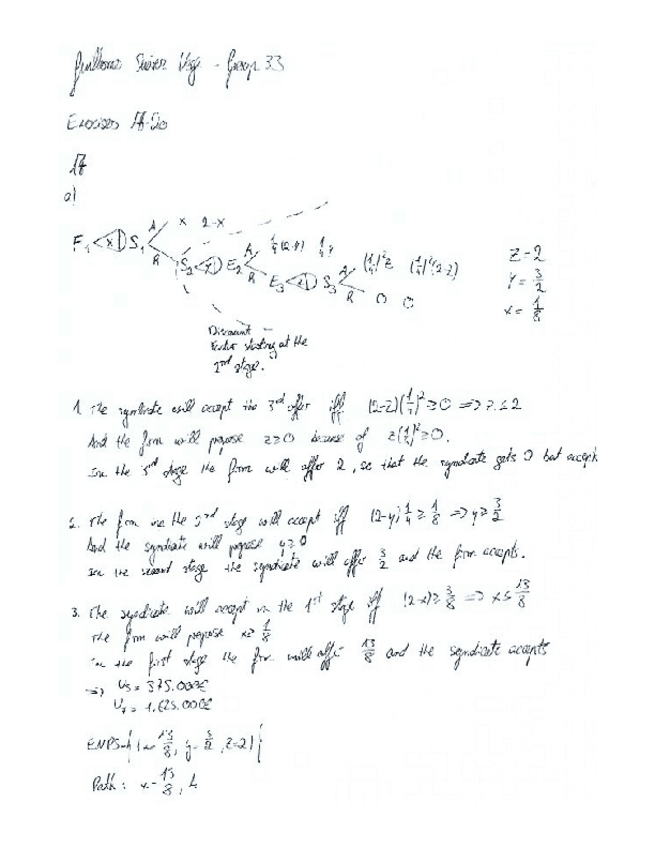 Group 33
Exercises 17-20
17
a)
F₁ x S₁ A x 2-x
R S₂ E₂ A 1/4(2-y) 1/4 y
R E₃ S₃ A (1/4)² z (1/4)²(2-z)
R 0 0
z=2
y=3/2
x=
Discount
Factor starting at the
2nd stage.
1. The syndicate will accept the 3rd offer iff (2-z)(1/4)² ≥ 0 => z ≤ 2
And the firm will propose z≥0 because of z(1/4)² ≥ 0.
In the 3rd stage the firm will offer 2, so that the syndicate gets 0 but accept
2. The firm in the 2nd stage will accept iff (2-y)1/4 ≥ 1/8 => y ≥ 3/2
And the syndicate will propose y≥0
In the second stage the syndicate will offer 3/2 and the firm accepts.
3. The syndicate will accept in the 1st stage iff (2-x) ≥ 3/8 => x ≤ 13/8
The firm will propose x≥ 1/8
In the first stage the firm will offer 13/8 and the syndicate accepts
=> U = 375.000€
U = 1.625.000€
13/8, y= 3/2, z=2)}
Path: x= 13/8, A